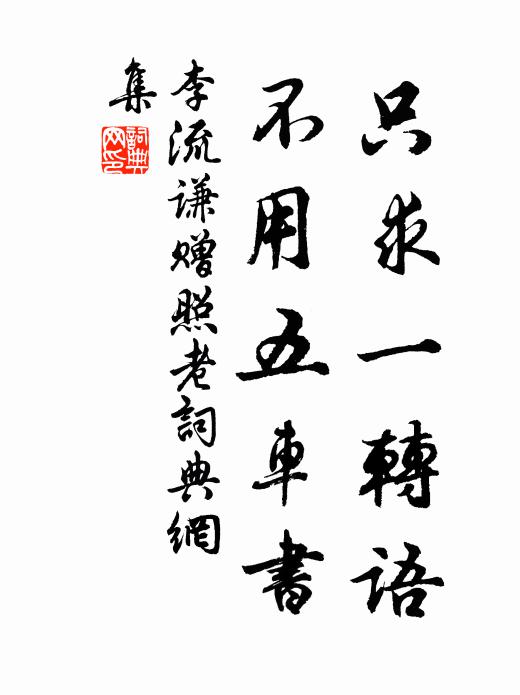 只求一轉語
不用五車書
李流謙贈照老詞典網
集
詞典網印